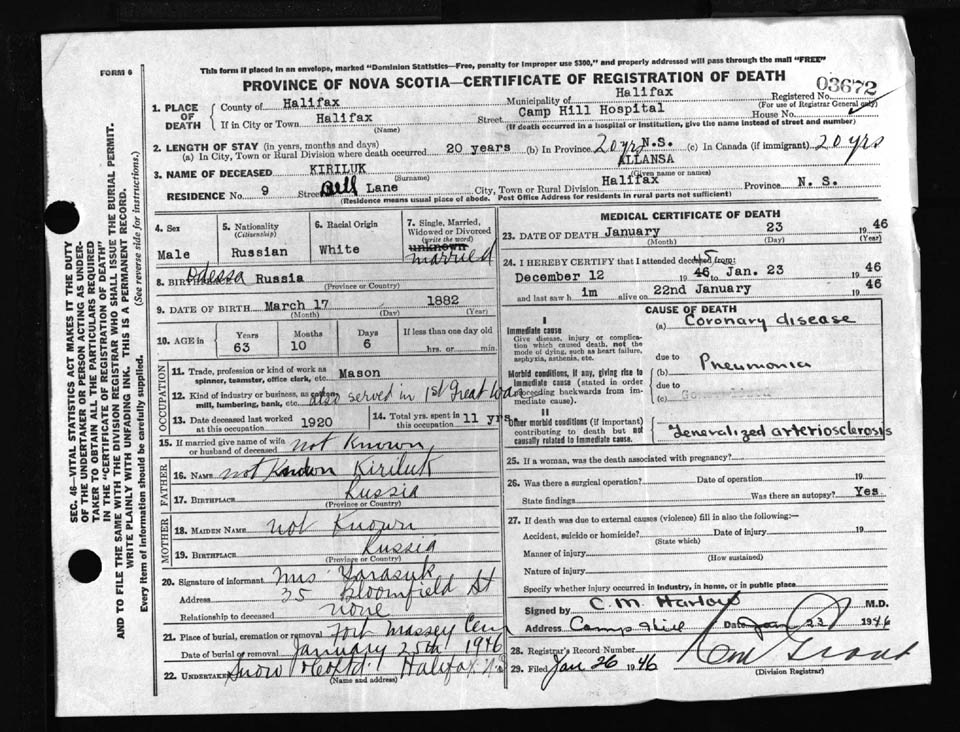 FORM 6
This form if placed in an envelope, marked "Dominion Statistics—Free, penalty for improper use $300," and properly addressed will pass through the mail "FREE"
PROVINCE OF NOVA SCOTIA—CERTIFICATE OF REGISTRATION OF DEATH
03672
1. PLACE OF DEATH County of Halifax Municipality of Halifax Registered No. (For use of Registrar General only)
If in City or Town Halifax (Name) Street Camp Hill Hospital House No.
(If death occurred in a hospital or institution, give the name instead of street and number)
2. LENGTH OF STAY (in years, months and days)
(a) In City, Town or Rural Division where death occurred 20 years (b) In Province 20 yrs N.S. (c) In Canada (if immigrant) 20 yrs
3. NAME OF DECEASED KIRILUK (Surname) ALLANSA (Given name or names)
RESIDENCE No. 9 Street Bell Lane City, Town or Rural Division Halifax Province N. S.
(Residence means usual place of abode. Post Office Address for residents in rural parts not sufficient)
4. Sex Male
5. Nationality (Citizenship) Russian
6. Racial Origin White
7. Single, Married, Widowed or Divorced (write the word) unknown married
8. Odessa Russia
(Province or Country)
9. DATE OF BIRTH March 17 1882
(Month) (Day) (Year)
10. AGE in Years 63 Months 10 Days 6 If less than one day old hrs. or min.
OCCUPATION
11. Trade, profession or kind of work as spinner, teamster, office clerk, etc. Mason
12. Kind of industry or business, as cotton mill, lumbering, bank, etc. also served in 1st Great War
13. Date deceased last worked at this occupation 1920
14. Total yrs. spent in this occupation 11 yrs
15. If married give name of wife or husband of deceased not Known
FATHER
16. Name not Known Kiriluk
17. Birthplace Russia
(Province or Country)
MOTHER
18. Maiden Name not Known
19. Birthplace Russia
(Province or Country)
20. Signature of informant Mrs Tarasyk
Address 35 Bloomfield St
Relationship to deceased none
21. Place of burial, cremation or removal Fort Massey Cem
Date of burial or removal January 25th 1946
22. UNDERTAKER Snow & Co Ltd. Halifax N.S.
(Name and address)
MEDICAL CERTIFICATE OF DEATH
23. DATE OF DEATH January 23 1946
(Month) (Day) (Year)
24. I HEREBY CERTIFY that I attended deceased from:
December 12 1946 45 Jan. 23 1946
and last saw him alive on 22nd January 1946
CAUSE OF DEATH
I
Immediate cause
Give disease, injury or complication which caused death, not the mode of dying, such as heart failure, asphyxia, asthenia, etc.
(a) Coronary disease
due to
Morbid conditions, if any, giving rise to immediate cause (stated in order proceeding backwards from immediate cause).
(b) Pneumonia
due to
(c)
II
Other morbid conditions (if important) contributing to death but not causally related to immediate cause.
Generalized arteriosclerosis
25. If a woman, was the death associated with pregnancy?
26. Was there a surgical operation? Date of operation 19
State findings Was there an autopsy? Yes
27. If death was due to external causes (violence) fill in also the following:—
Accident, suicide or homicide? Date of injury 19
(State which)
Manner of injury
(How sustained)
Nature of injury
Specify whether injury occurred in industry, in home, or in public place
Signed by C. M. Harlow M.D.
Address Camp Hill Date Jan 23 1946
28. Registrar's Record Number
29. Filed Jan 26 1946
(Division Registrar)
SEC. 46—VITAL STATISTICS ACT MAKES IT THE DUTY
OF THE UNDERTAKER OR PERSON ACTING AS UNDERTAKER
TO OBTAIN ALL THE PARTICULARS REQUIRED
IN THE "CERTIFICATE OF REGISTRATION OF DEATH" AND
TO FILE THE SAME WITH THE DIVISION REGISTRAR WHO SHALL ISSUE THE BURIAL PERMIT.
WRITE PLAINLY WITH UNFADING INK. THIS IS A PERMANENT RECORD.
Every item of Information should be carefully supplied. (See reverse side for instructions.)